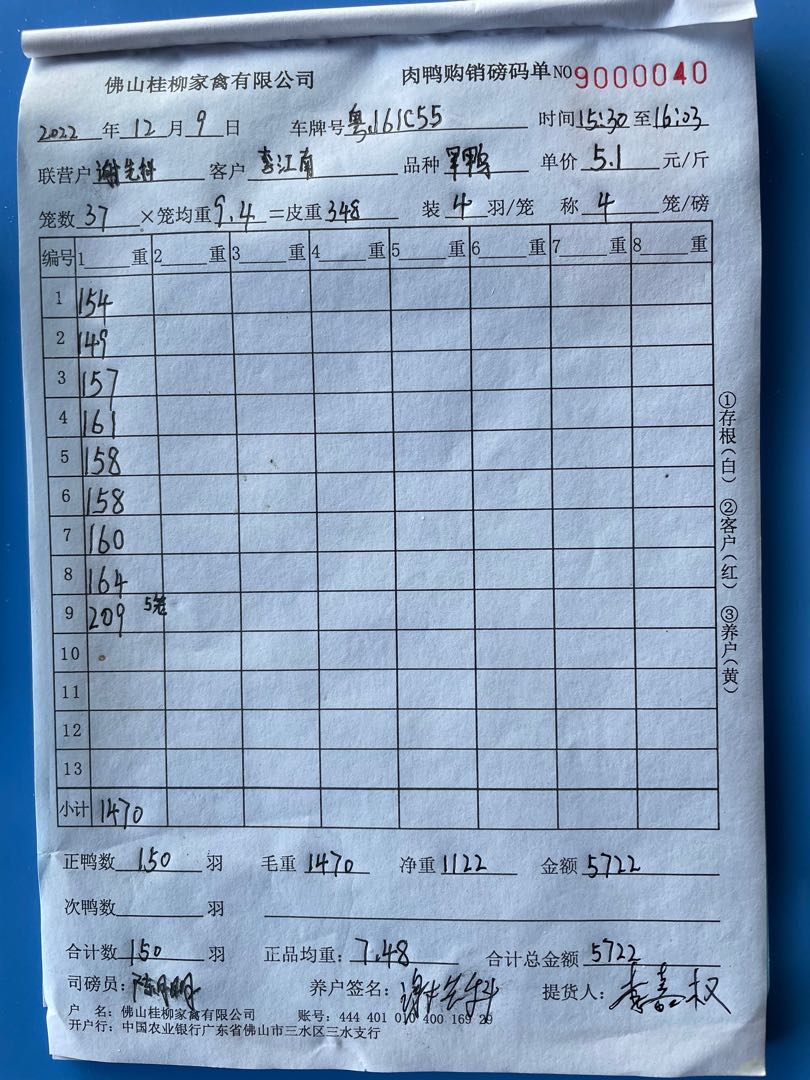 佛山桂柳家禽有限公司 肉鸭购销磅码单 NO 9000040
2022 年 12 月 9 日 车牌号 粤J61C55 时间 15:30 至 16:03
联营户 谢先科 客户 李江南 品种 单价 5.1 元/斤
笼数 37 ×笼均重 9.4 =皮重 348 装 4 羽/笼 称 4 笼/磅
编号 1 重 2 重 3 重 4 重 5 重 6 重 7 重 8 重
1 154
2 149
3 157
4 161
5 158
6 158
7 160
8 164
9 209 5笼
10
11
12
13
小计 1470
①存根(白) ②客户(红) ③养户(黄)
正鸭数 150 羽 毛重 1470 净重 1122 金额 5722
次鸭数 羽
合计数 150 羽 正品均重: 7.48 合计总金额 5722
司磅员: 养户签名: 谢先科 提货人:
户 名: 佛山桂柳家禽有限公司 账号: 444 401 010 400 169 29
开户行: 中国农业银行广东省佛山市三水区三水支行